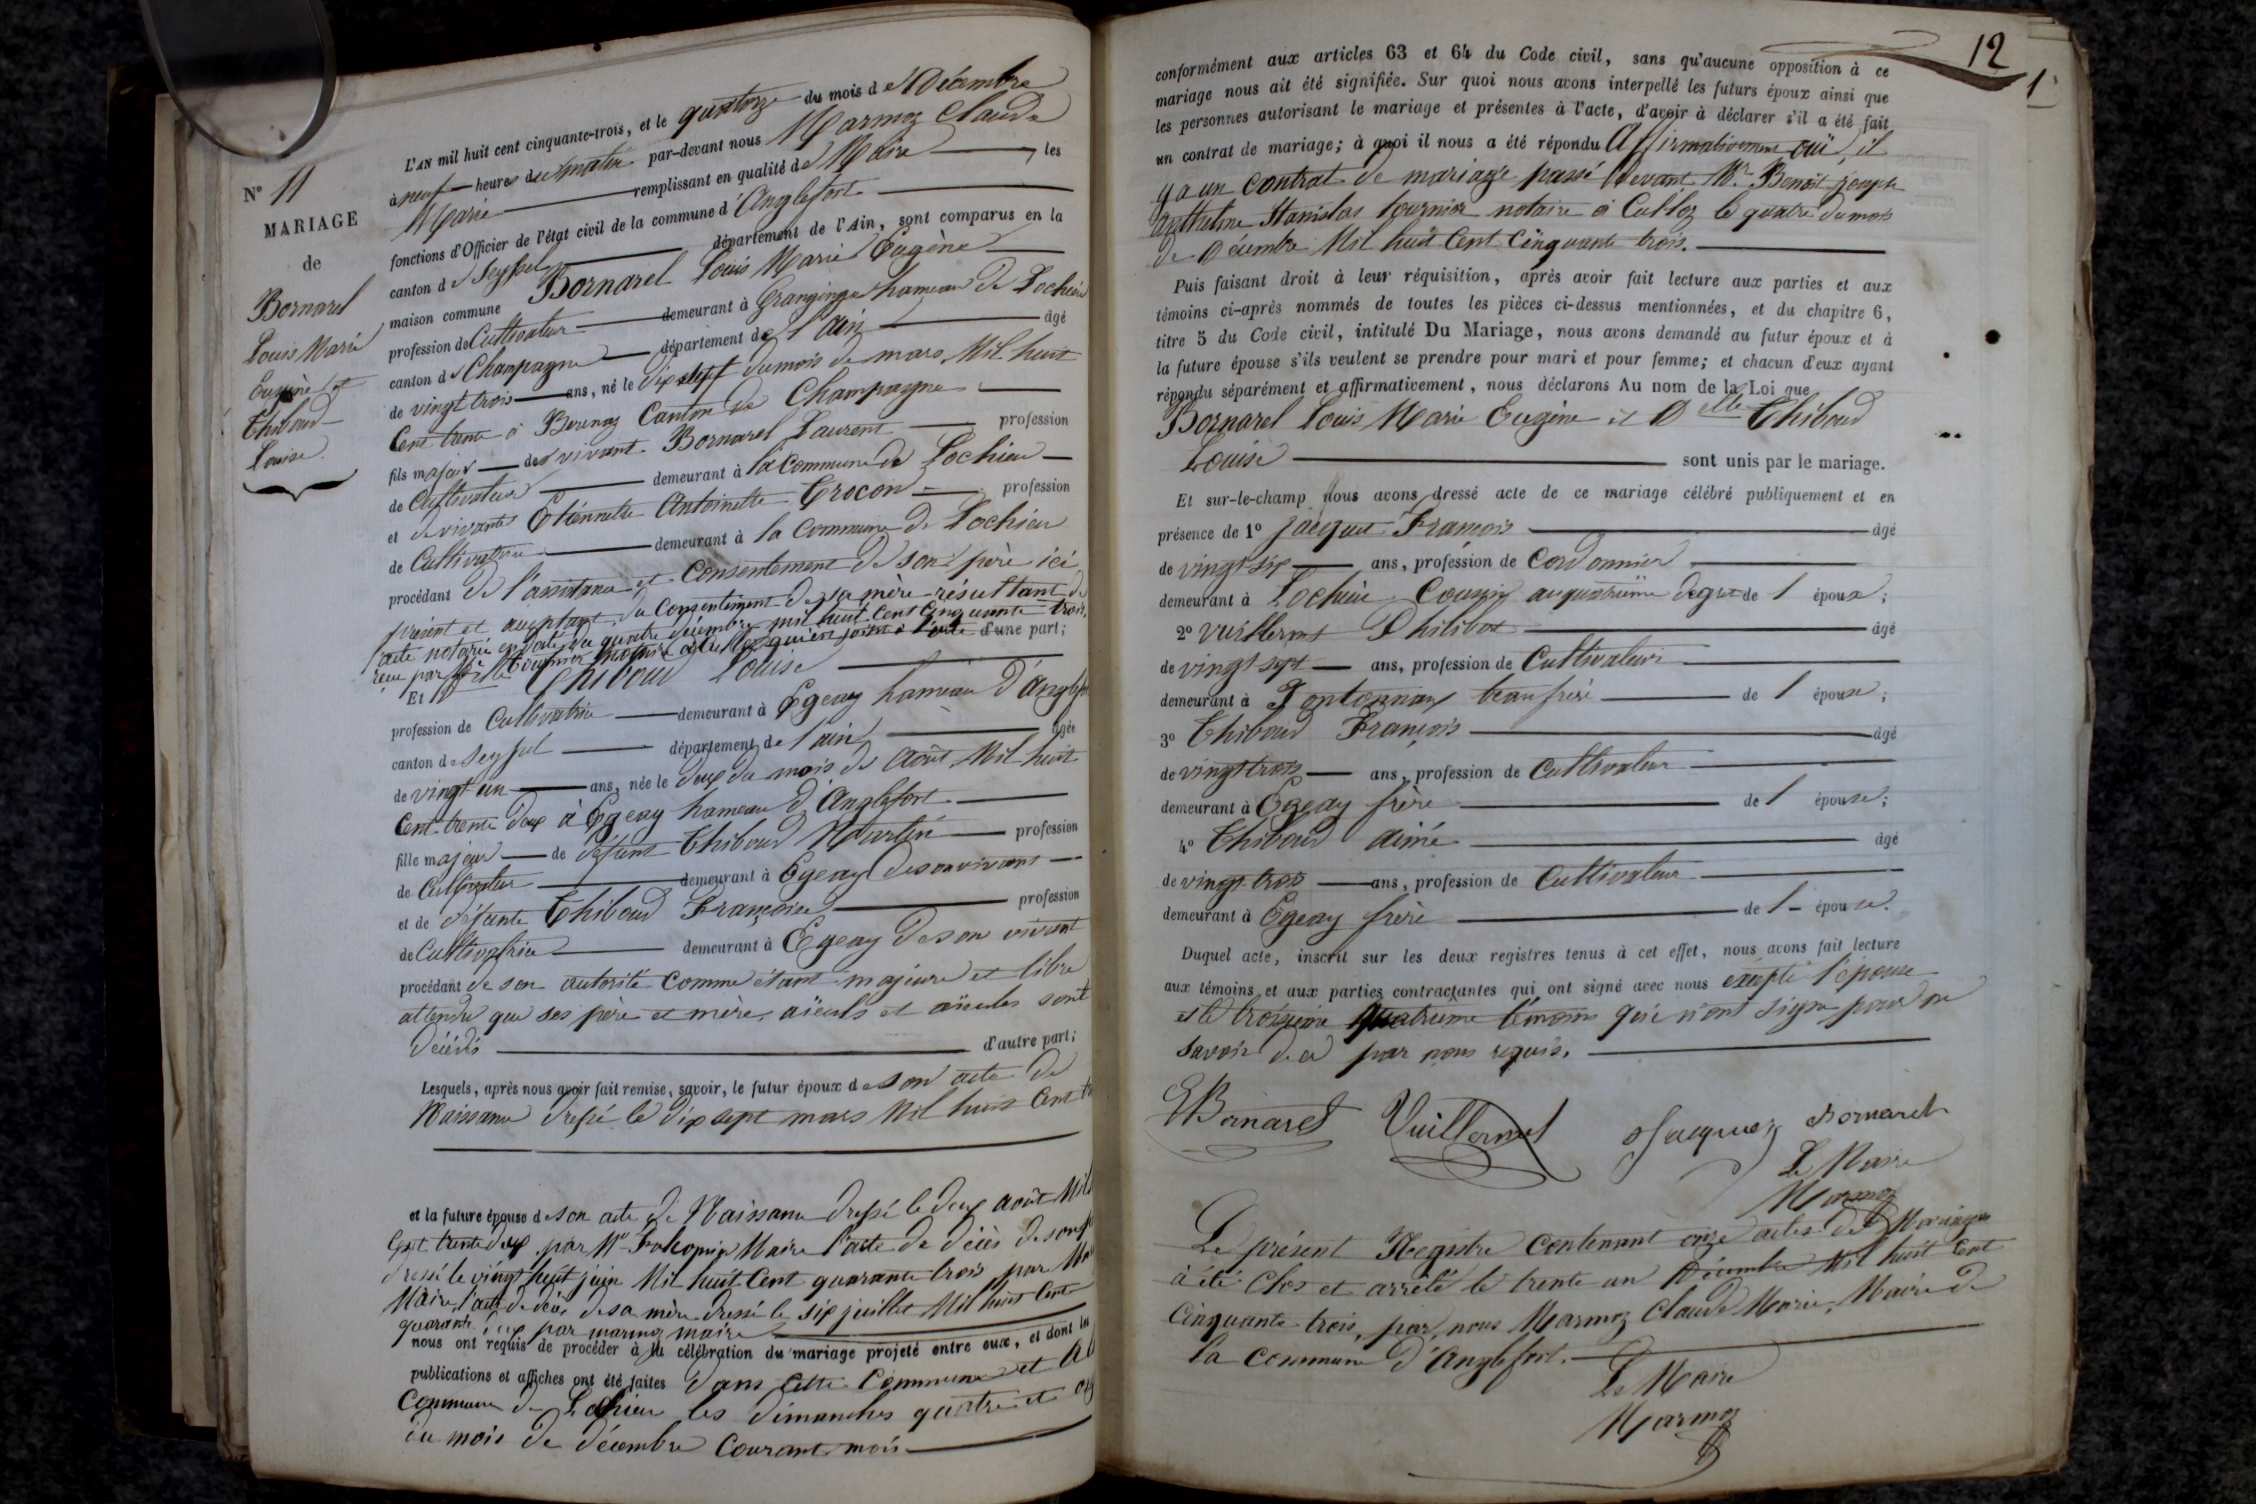 N° 11
MARIAGE
de
Bornarel
Louis Marie
Eugène et
Thiboud
Louise
L'AN mil huit cent cinquante-trois, et le quatorze du mois de Décembre
à neuf heures du matin par-devant nous Marmoz Claude
Marie remplissant en qualité de Maire les
fonctions d'Officier de l'état civil de la commune d'Anglefort
canton de Seyssel département de l'Ain, sont comparus en la
maison commune Bornarel Louis Marie Eugène
profession de Cultivateur demeurant à hameau de Lochieu
canton de Champagne département de l'ain âgé
de vingt trois ans, né le dix sept du mois de mars Mil huit
Cent trente à Canton de Champagne
fils majeur de vivant Bornarel Laurent profession
de Cultivateur demeurant à la Commune de Lochieu
et de vivante Etiennette Antoinette Trocon profession
de Cultivatrice demeurant à la Commune de Lochieu
procédant de l'assistance et Consentement de son père ici
présent et acceptant, du Consentement de sa mère résultant de
l'acte notarié en date du quatre décembre mil huit Cent Cinquante trois
reçu par Me tournier notaire à Culloz qui est joint à l'acte d'une part;
Et Delle Thiboud Louise
profession de Cultivatrice demeurant à Egeay hameau d'Anglef
canton de Seyssel département de l'ain âgée
de vingt un ans, née le deux du mois de Août Mil huit
Cent trente deux à Egeay hameau d'Anglefort
fille majeur de défunt Thiboud Martin profession
de Cultivateur demeurant à Egeay de son vivant
et de défunte Thiboud Françoise profession
de Cultivatrice demeurant à Egeay de son vivant
procédant de son autorité comme étant majeure et libre
attendu que ses père et mère, aïeuls et aïeules sont
décédés d'autre part;
Lesquels, après nous avoir fait remise, savoir, le futur époux de son acte de
Naissance dressé le dix sept mars Mil huit Cent tr
et la future épouse de son acte de Naissance dressé le deux août Mil
Cent trente deux par Mr Maire l'acte de décès de son
dressé le vingt huit juin Mil huit Cent quarante trois par
Maire, l'acte de décès de sa mère dressé le six juillet Mil huit Cent
quarante par marmoz maire
nous ont requis de procéder à la célébration du mariage projeté entre eux, et dont les
publications et affiches ont été faites dans cette Commune et
Commune de Lochieu les dimanches quatre et
du mois de décembre Courant mois
12
1
conformément aux articles 63 et 64 du Code civil, sans qu'aucune opposition à ce
mariage nous ait été signifiée. Sur quoi nous avons interpellé les futurs époux ainsi que
les personnes autorisant le mariage et présentes à l'acte, d'avoir à déclarer s'il a été fait
un contrat de mariage; à quoi il nous a été répondu Affirmativement ouï, il
y a un Contrat de mariage passé Devant Mr Benoit joseph
anthelme Stanislas tournier notaire à Culloz le quatre du mois
de Décembre Mil huit Cent Cinquante trois.
Puis faisant droit à leur réquisition, après avoir fait lecture aux parties et aux
témoins ci-après nommés de toutes les pièces ci-dessus mentionnées, et du chapitre 6,
titre 5 du Code civil, intitulé Du Mariage, nous avons demandé au futur époux et à
la future épouse s'ils veulent se prendre pour mari et pour femme; et chacun d'eux ayant
répondu séparément et affirmativement, nous déclarons Au nom de la Loi que
Bornarel Louis Marie Eugène et Delle Thiboud
Louise sont unis par le mariage.
Et sur-le-champ nous avons dressé acte de ce mariage célébré publiquement et en
présence de 1° Jacquet François âgé
de vingt six ans, profession de Cordonnier
demeurant à Lochieu Cousin au quatrième degré de l'époux;
2° Vuillermet Philibert âgé
de vingt sept ans, profession de Cultivateur
demeurant à beau frère de l'époux;
3° Thiboud François âgé
de vingt trois ans, profession de Cultivateur
demeurant à Egeay frère de l'épouse;
4° Thiboud aimé âgé
de vingt trois ans, profession de Cultivateur
demeurant à Egeay frère de l'épouse.
Duquel acte, inscrit sur les deux registres tenus à cet effet, nous avons fait lecture
aux témoins et aux parties contractantes qui ont signé avec nous excepté l'épouse
et le troisième quatrième témoins qui n'ont signé pour ne
savoir de ce par nous requis.
EBornarel Vuillermet Jacquet Bornarel
Le Maire
Marmoz
Le présent Registre contenant onze actes de Mariages
à été Clos et arrêté le trente un Décembre Mil huit Cent
Cinquante trois, par nous Marmoz Claude Marie, Maire de
la Commune d'Anglefort.
Le Maire
Marmoz